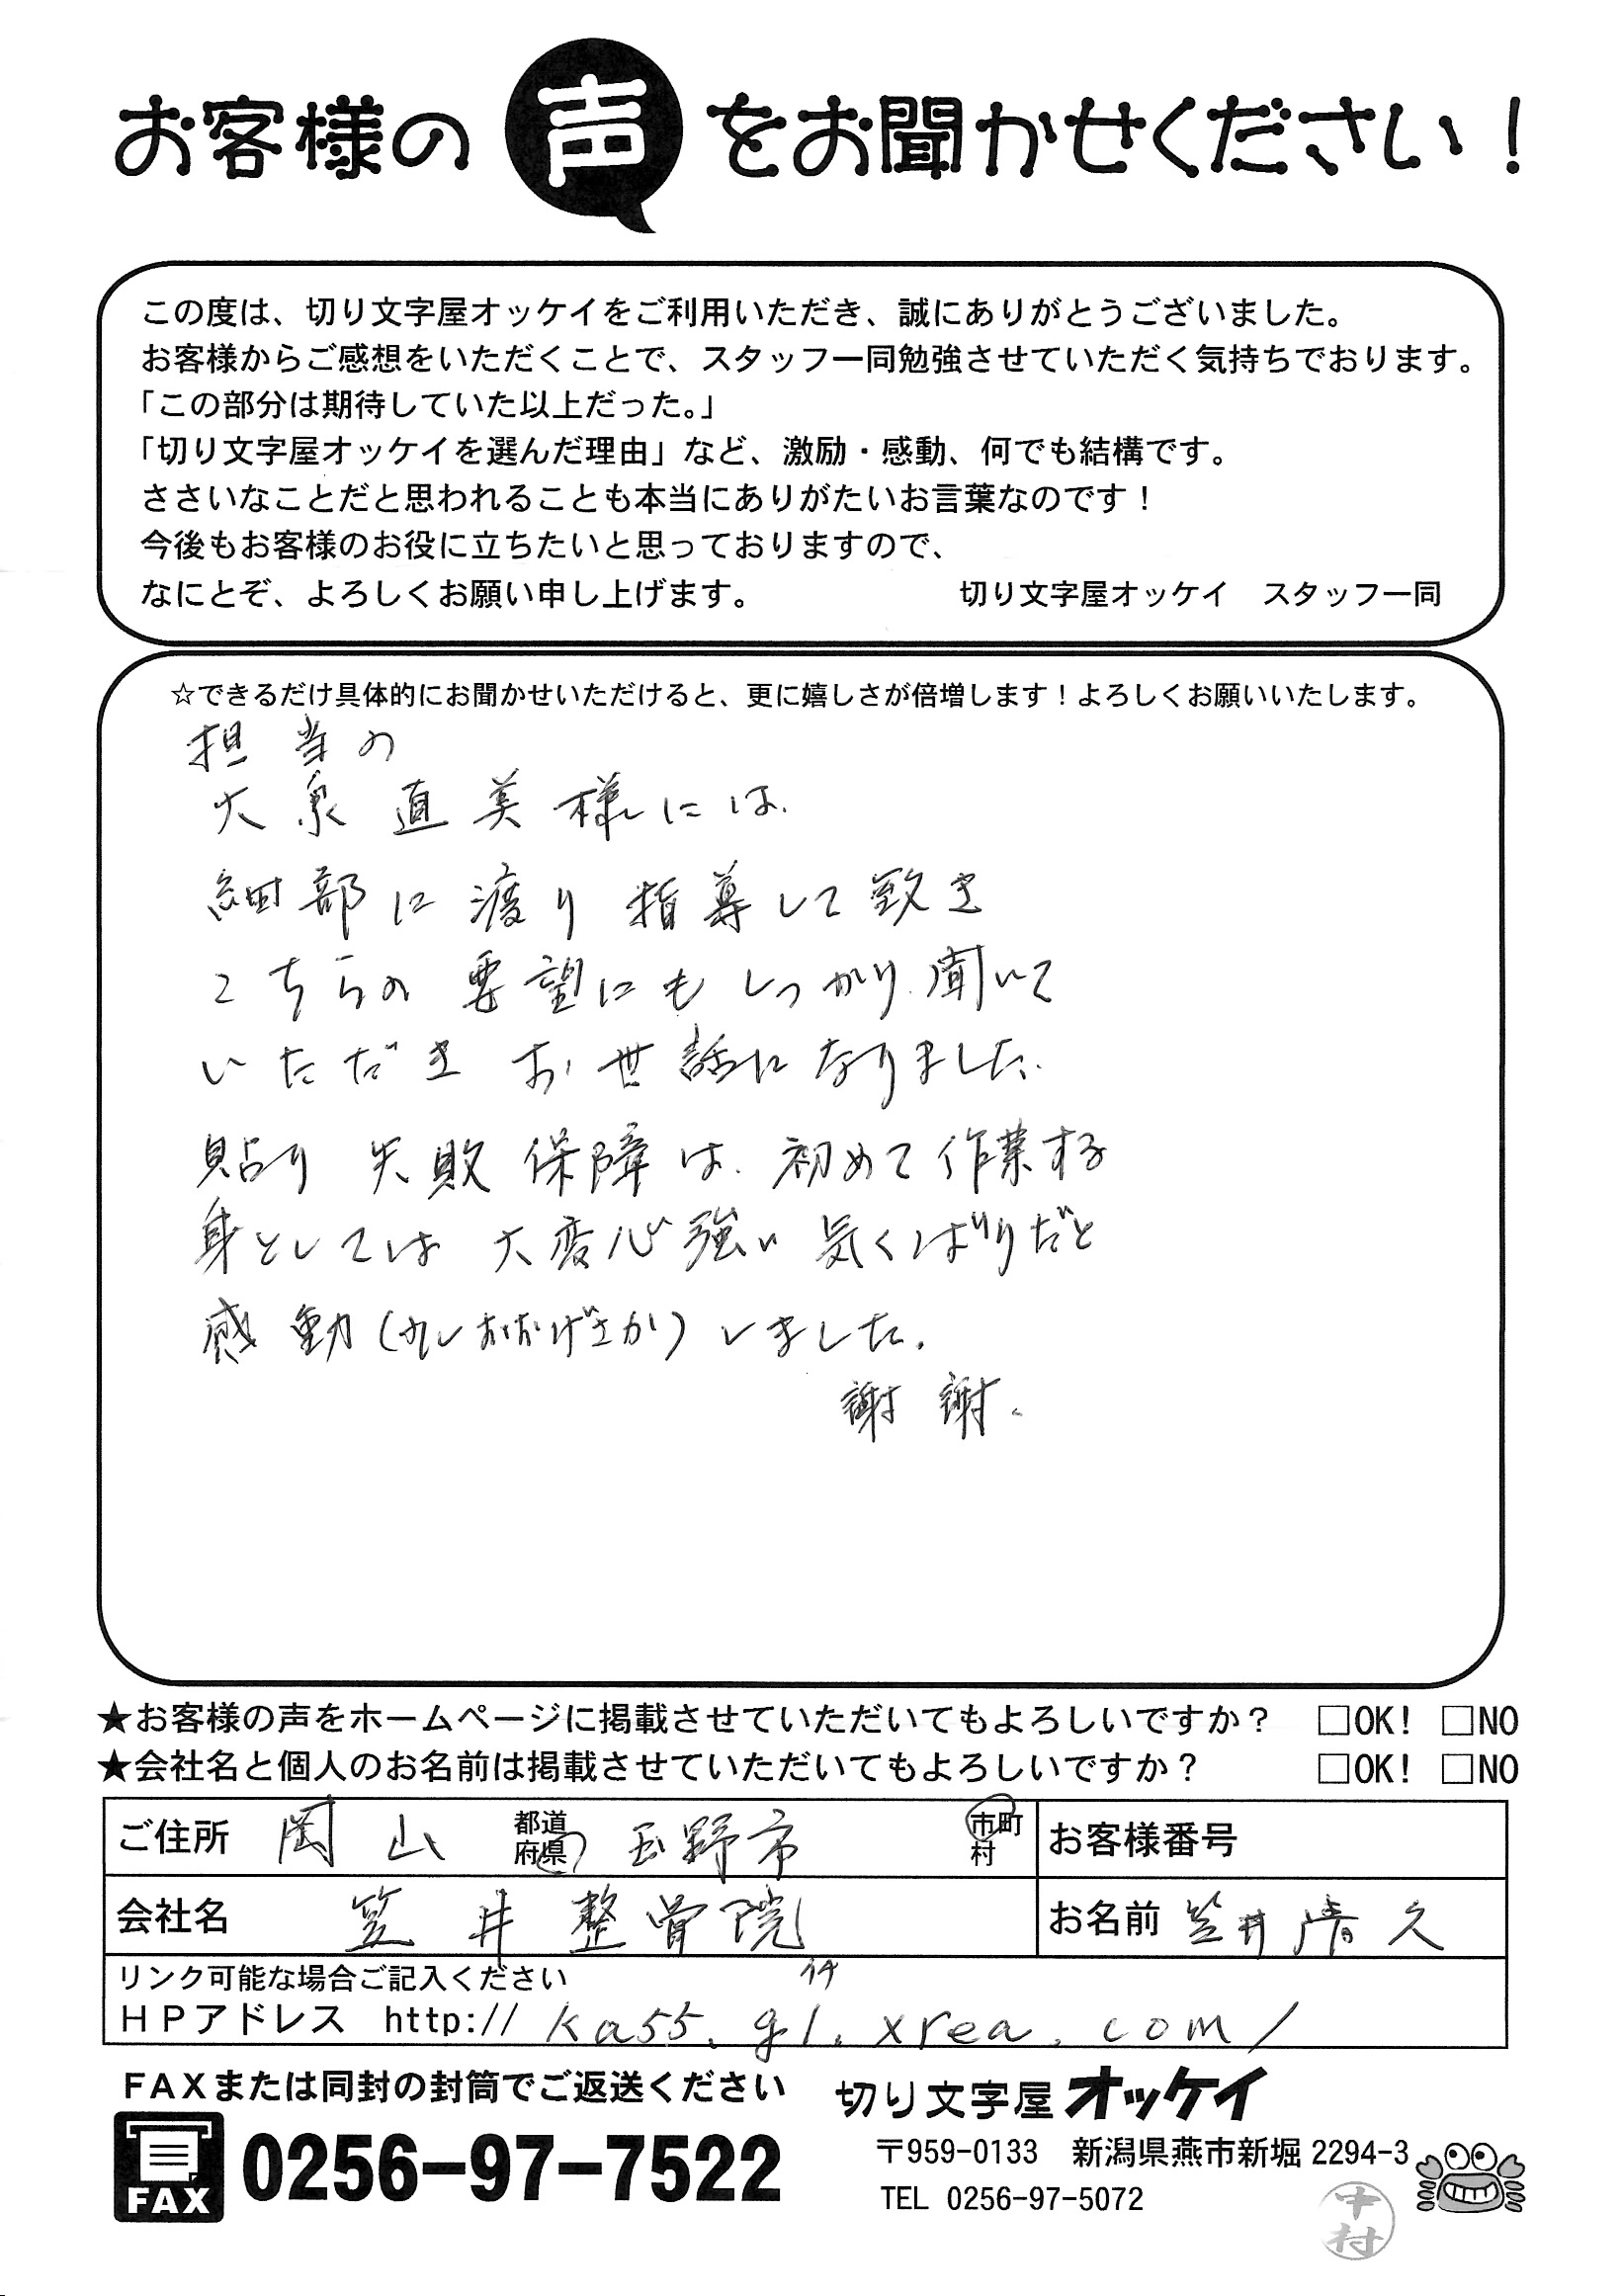 お客様の声をお聞かせください！
この度は、切り文字屋オッケイをご利用いただき、誠にありがとうございました。
お客様からご感想をいただくことで、スタッフ一同勉強させていただく気持ちでおります。
「この部分は期待していた以上だった。」
「切り文字屋オッケイを選んだ理由」など、激励・感動、何でも結構です。
ささいなことだと思われることも本当にありがたいお言葉なのです！
今後もお客様のお役に立ちたいと思っておりますので、
なにとぞ、よろしくお願い申し上げます。　切り文字屋オッケイ　スタッフ一同
☆できるだけ具体的にお聞かせいただけると、更に嬉しさが倍増します！よろしくお願いいたします。
担当の
大泉直美様には、
細部に渡り指導して致き
こちらの要望にもしっかり聞いて
いただき お世話になりました。
貼り失敗保障は、初めて作業する
身としては大変心強い気くばりだと
感動(少しおおげさか)しました。
謝謝。
★お客様の声をホームページに掲載させていただいてもよろしいですか？ □OK! □NO
★会社名と個人のお名前は掲載させていただいてもよろしいですか？ □OK! □NO
ご住所 岡山 都道府県 玉野市 市町村 お客様番号
会社名 笠井整骨院 お名前 笠井清久
リンク可能な場合ご記入ください イチ
ＨＰアドレス http:// ka55.g1.xrea.com/
ＦＡＸまたは同封の封筒でご返送ください
FAX 0256-97-7522
切り文字屋オッケイ
〒959-0133 新潟県燕市新堀2294-3
TEL 0256-97-5072
中村